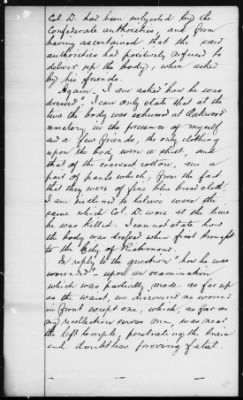 Col. D. had been subjected by the
Confederate authorities, and from
having ascertained that the said
authorities had positively refused to
deliver up the body, when asked
by his friends.
Again, I am asked how he was
dressed". I can only state that at the
time the body was exhumed at Oakwood
Cemetery, in the presence of myself
and a few friends, the only clothing
upon the body were a shirt, and
that of the coarsest cotton, and a
pair of pants which, from the fact
that they were of fine blue broad cloth,
I am inclined to believe were the
same which Col. D. wore at the time
he was killed. I cannot state how
the body was dressed when first brought
to the City of Richmond.
In reply to the question "how he was
wounded" upon an examination
which was partially made as far up
as the waist, we discovered no wound
in front except one, which, as far as
my recollection serves me, was near
the left temple, penetrating the brain
and doubtless proving fatal.